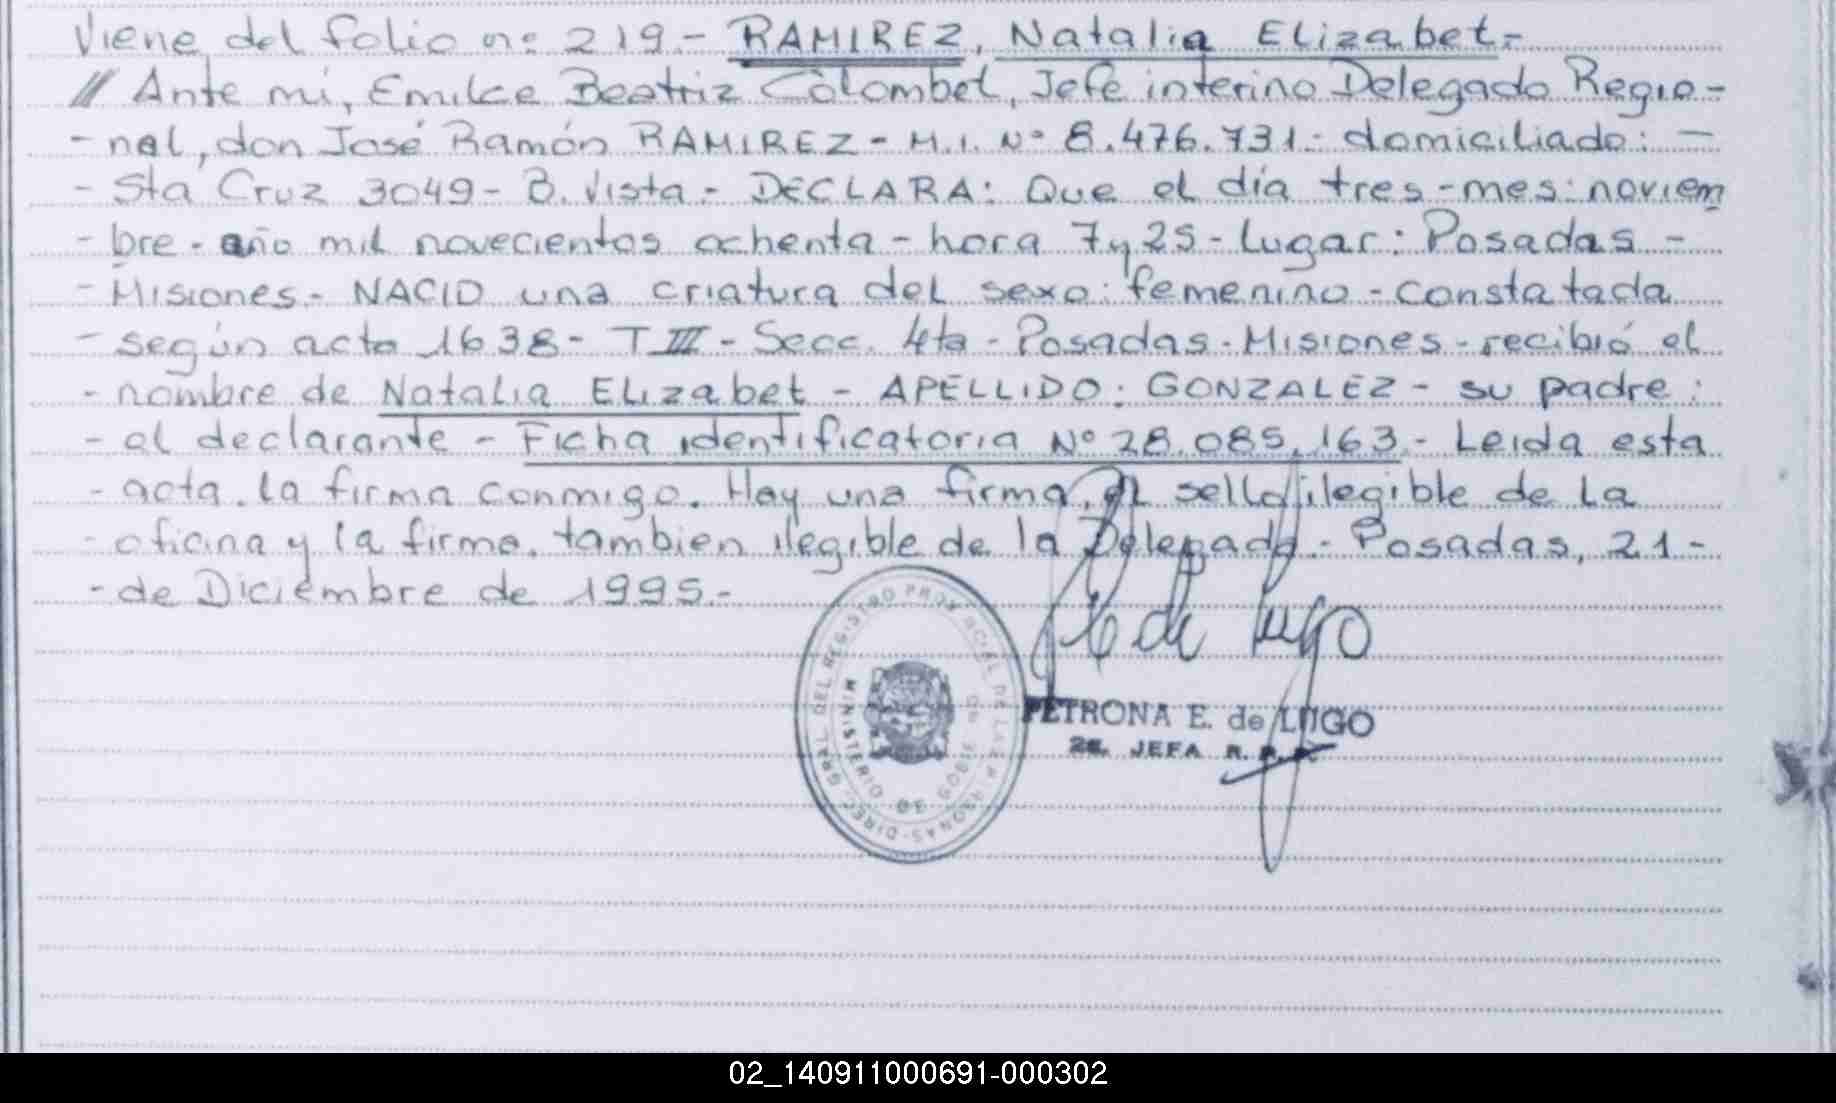 Viene del folio nº 219.- RAMIREZ, Natalia Elizabet.-
// Ante mi, Emilce Beatriz Colombet, Jefe interino Delegado Regio-
- nal, don José Ramón RAMIREZ - M.I. Nº 8.476.731.- domiciliado: -
- Sta Cruz 3049 - B. Vista.- DECLARA: Que el día tres - mes: noviem
- bre - año mil novecientos ochenta - hora 7 y 25 - Lugar: Posadas -
- Misiones.- NACIO una criatura del sexo: femenino - Constatada
- según acta 1638 - T III - Secc. 4ta - Posadas - Misiones - recibió el
- nombre de Natalia Elizabet - APELLIDO: GONZALEZ - su padre:
- el declarante - Ficha identificatoria Nº 28.085.163.- Leida esta
- acta. la firma conmigo. Hay una firma, el sello ilegible de la
- oficina y la firma, tambien ilegible de la Delegada.- Posadas, 21 -
- de Diciembre de 1995.-
DIREC. GRAL. DEL REGISTRO PROVINCIAL DE LAS PERSONAS
MINISTERIO DE GOBIERNO
de Lugo
PETRONA E. de LUGO
2a. JEFA R. P.
02_140911000691-000302